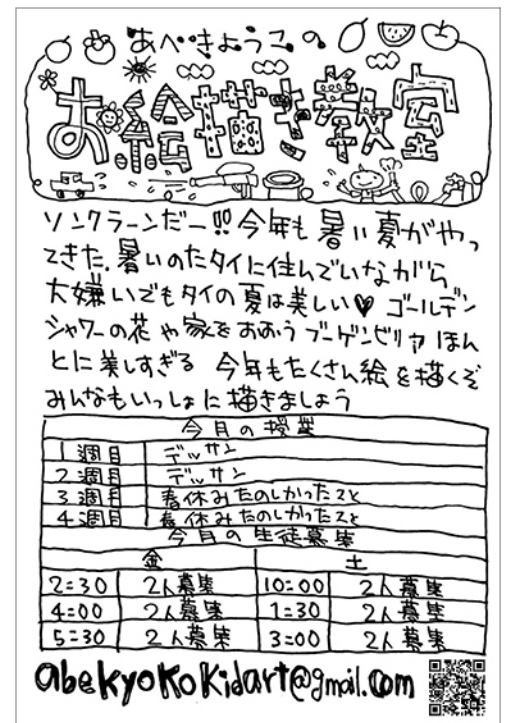 あべきょうこの
お絵描き教室
ソンクラーンだー!!今年も暑い夏がやっ
てきた.暑いのたタイに住んでいながら
大嫌いでもタイの夏は美しい♥ ゴールデン
シャワーの花や家をおおうブーゲンビリヤほん
とに美しすぎる 今年もたくさん絵を描くぞ
みんなもいっしょに描きましょう
今月の授業
1週目 デッサン
2週目 デッサン
3週目 春休みたのしかったこと
4週目 春休みたのしかったこと
今月の生徒募集
金 土
2:30 2人募集 10:00 2人募集
4:00 2人募集 1:30 2人募集
5:30 2人募集 3:00 2人募集
abekyokokidart@gmail.com